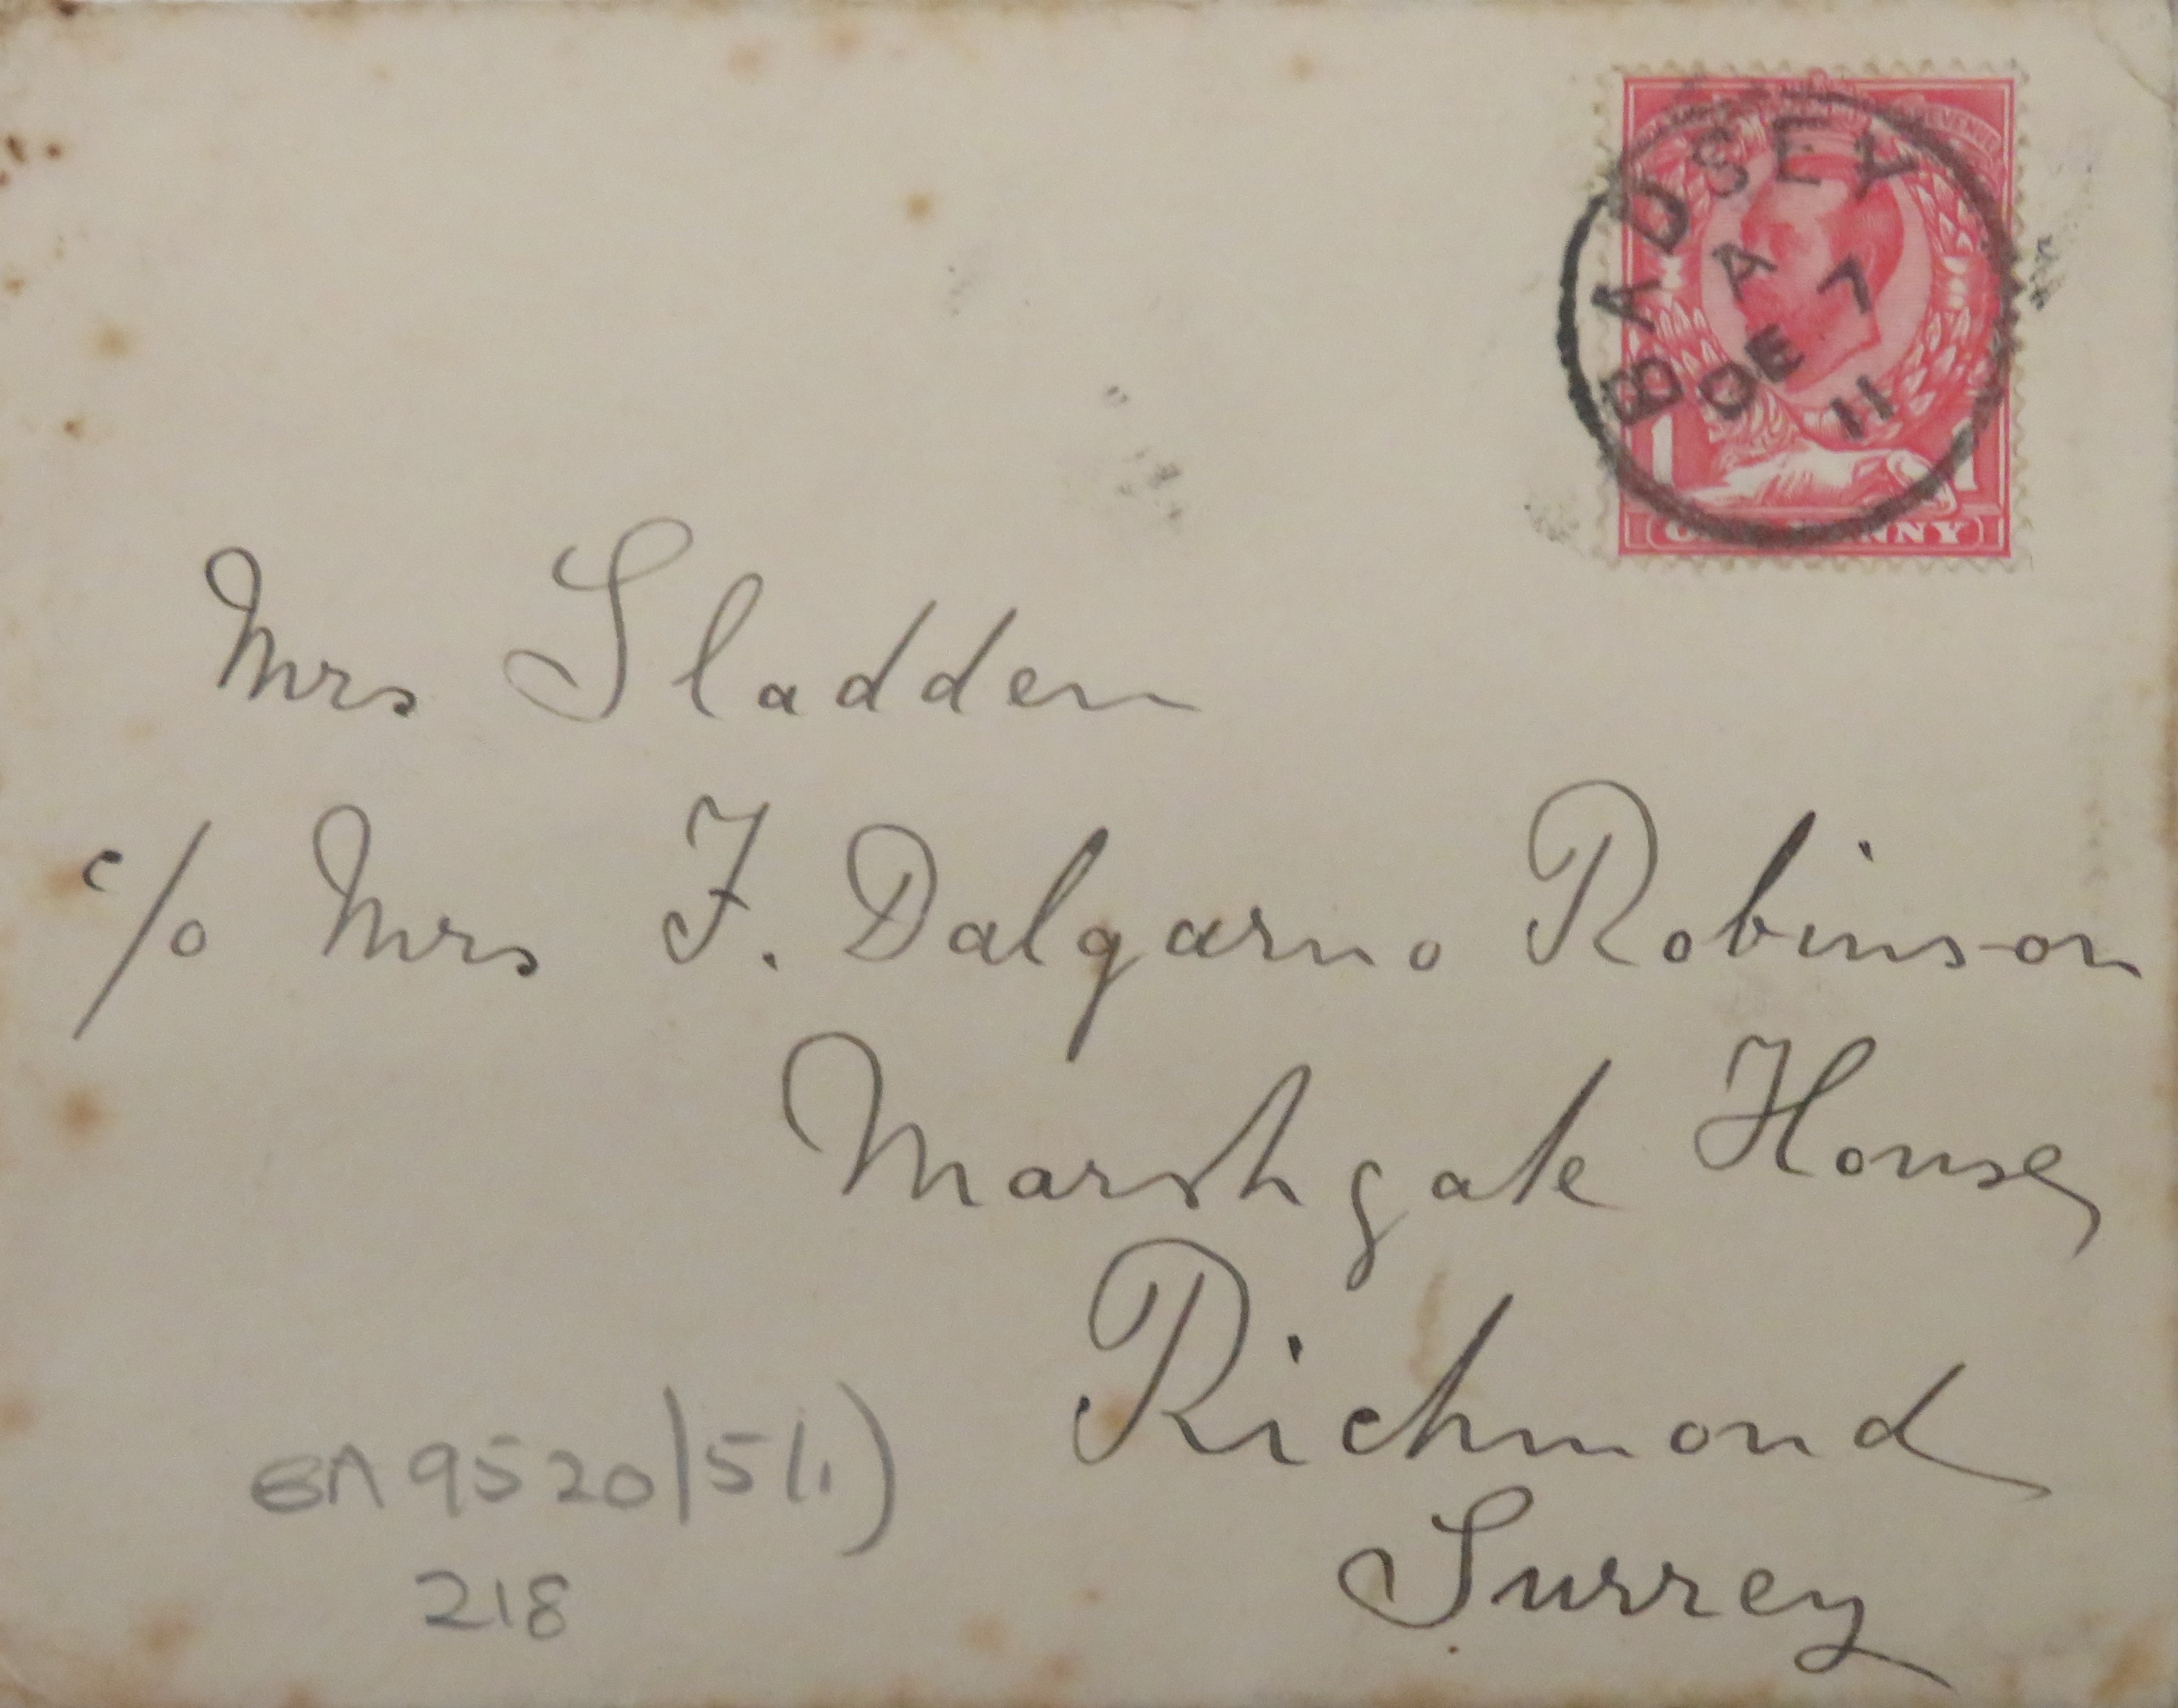 BADSEY
A
DE 7
11
1 1
NNY
Mrs Sladden
c/o Mrs F. Dalgarno Robinson
Marshgate House,
Richmond
Surrey
218